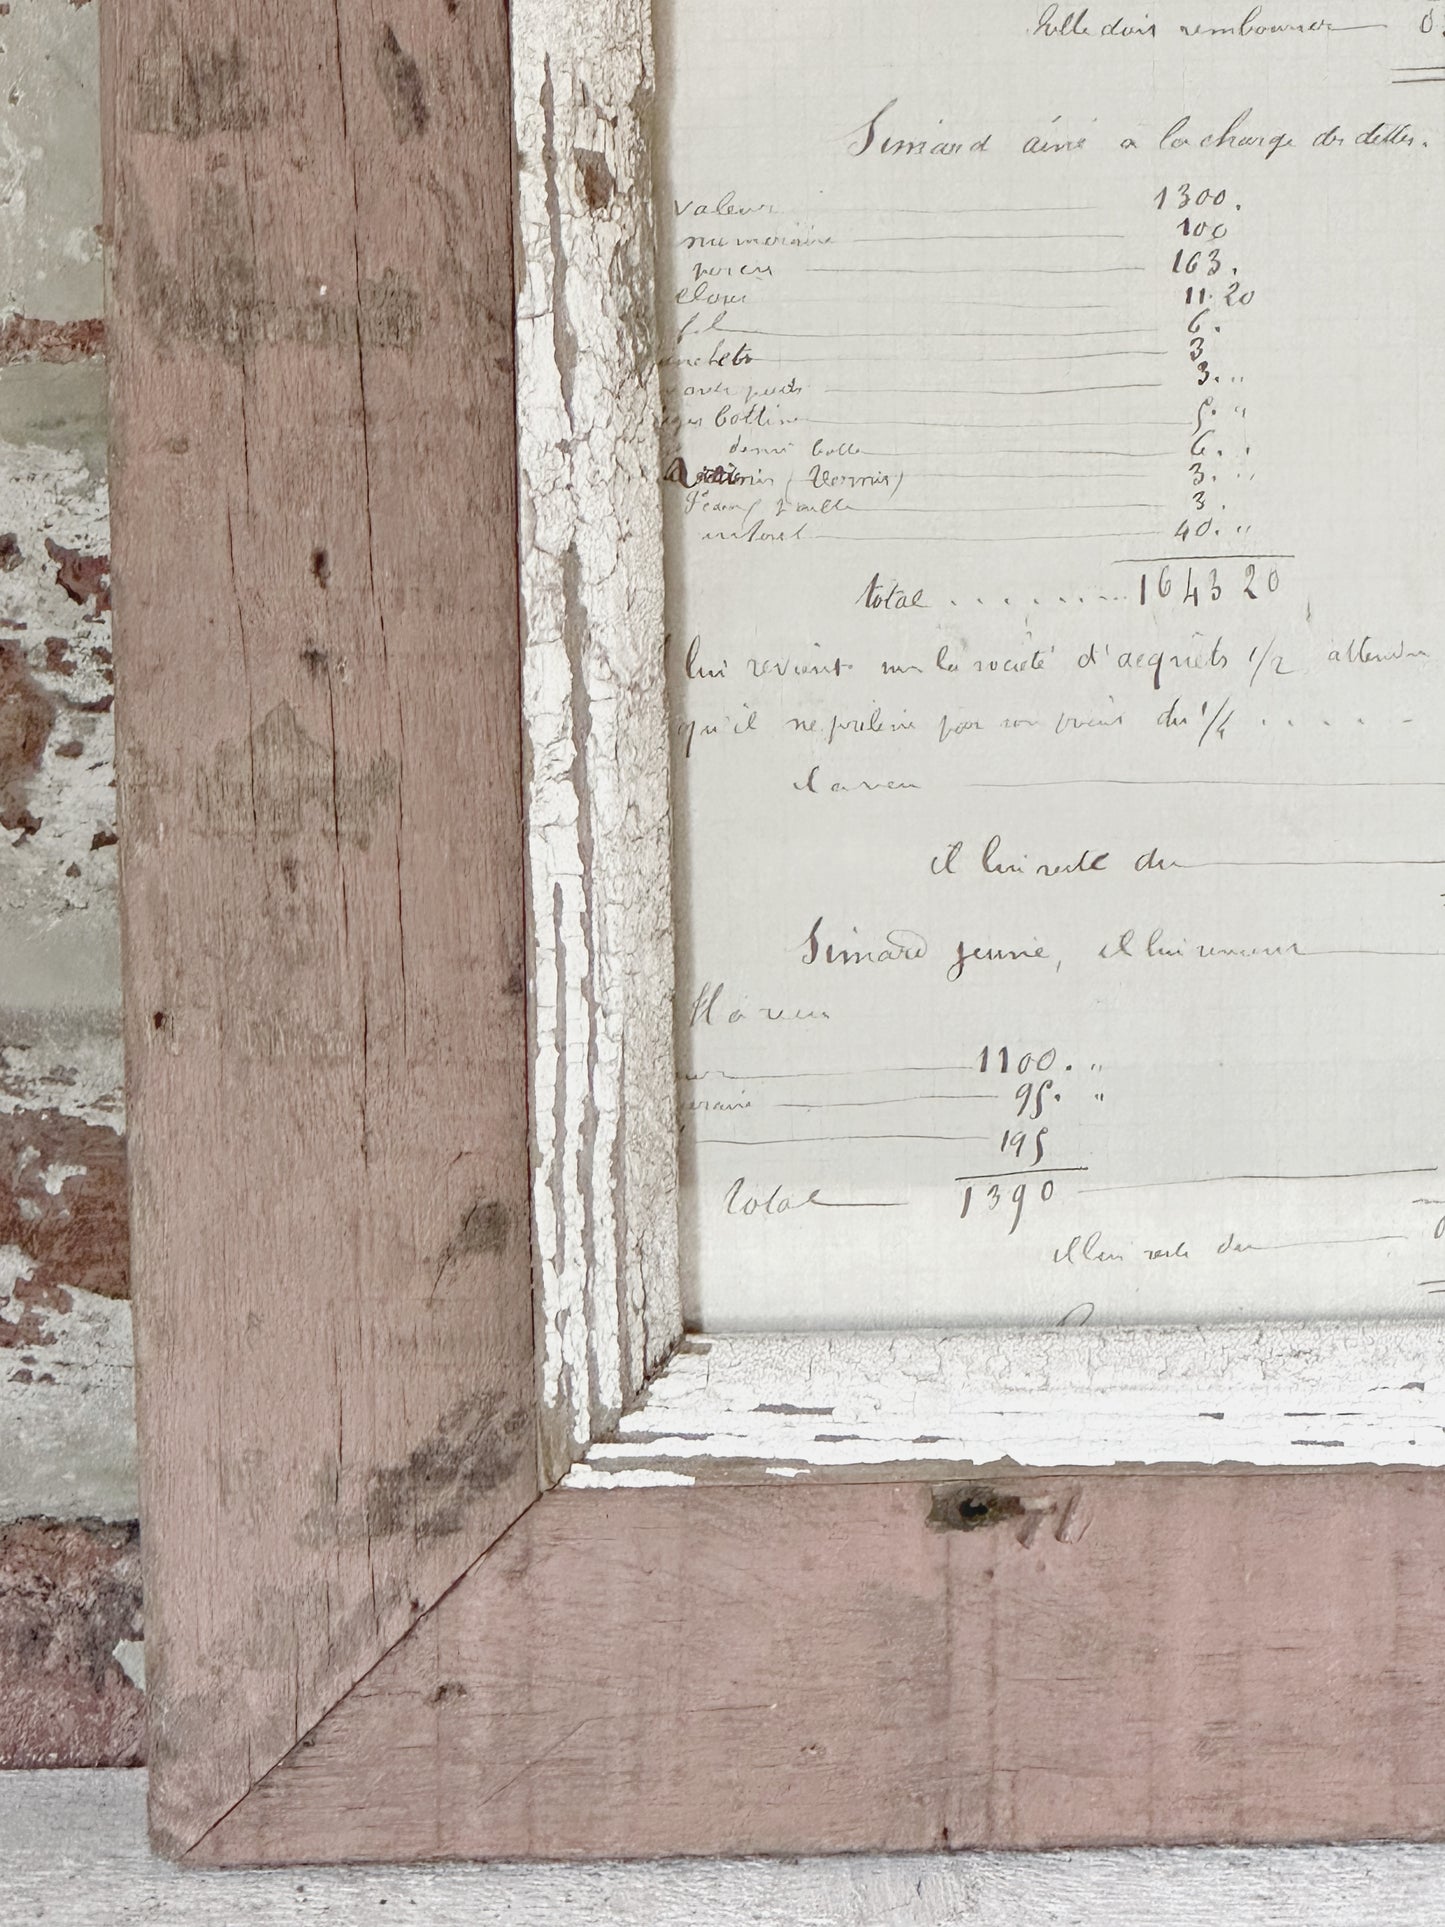 doit rembourser
Simard ainé a la charge des dettes.
valeur 1300.
numeraire 100
porcs 163.
11.20
fil 6.
3
3. "
bottine 5. "
demi botte 6. "
(Vernis) 3. "
3.
40. "
total ........ 1643 20
lui revient sur la société d'acquêts 1/2 attendu
qu'il ne prélève par son préciput du 1/4 . . . . -
il a reçu
il lui reste du
Simard jeune, il lui revient
Il a reçu
1100. "
95. "
195
total 1390
il lui reste du